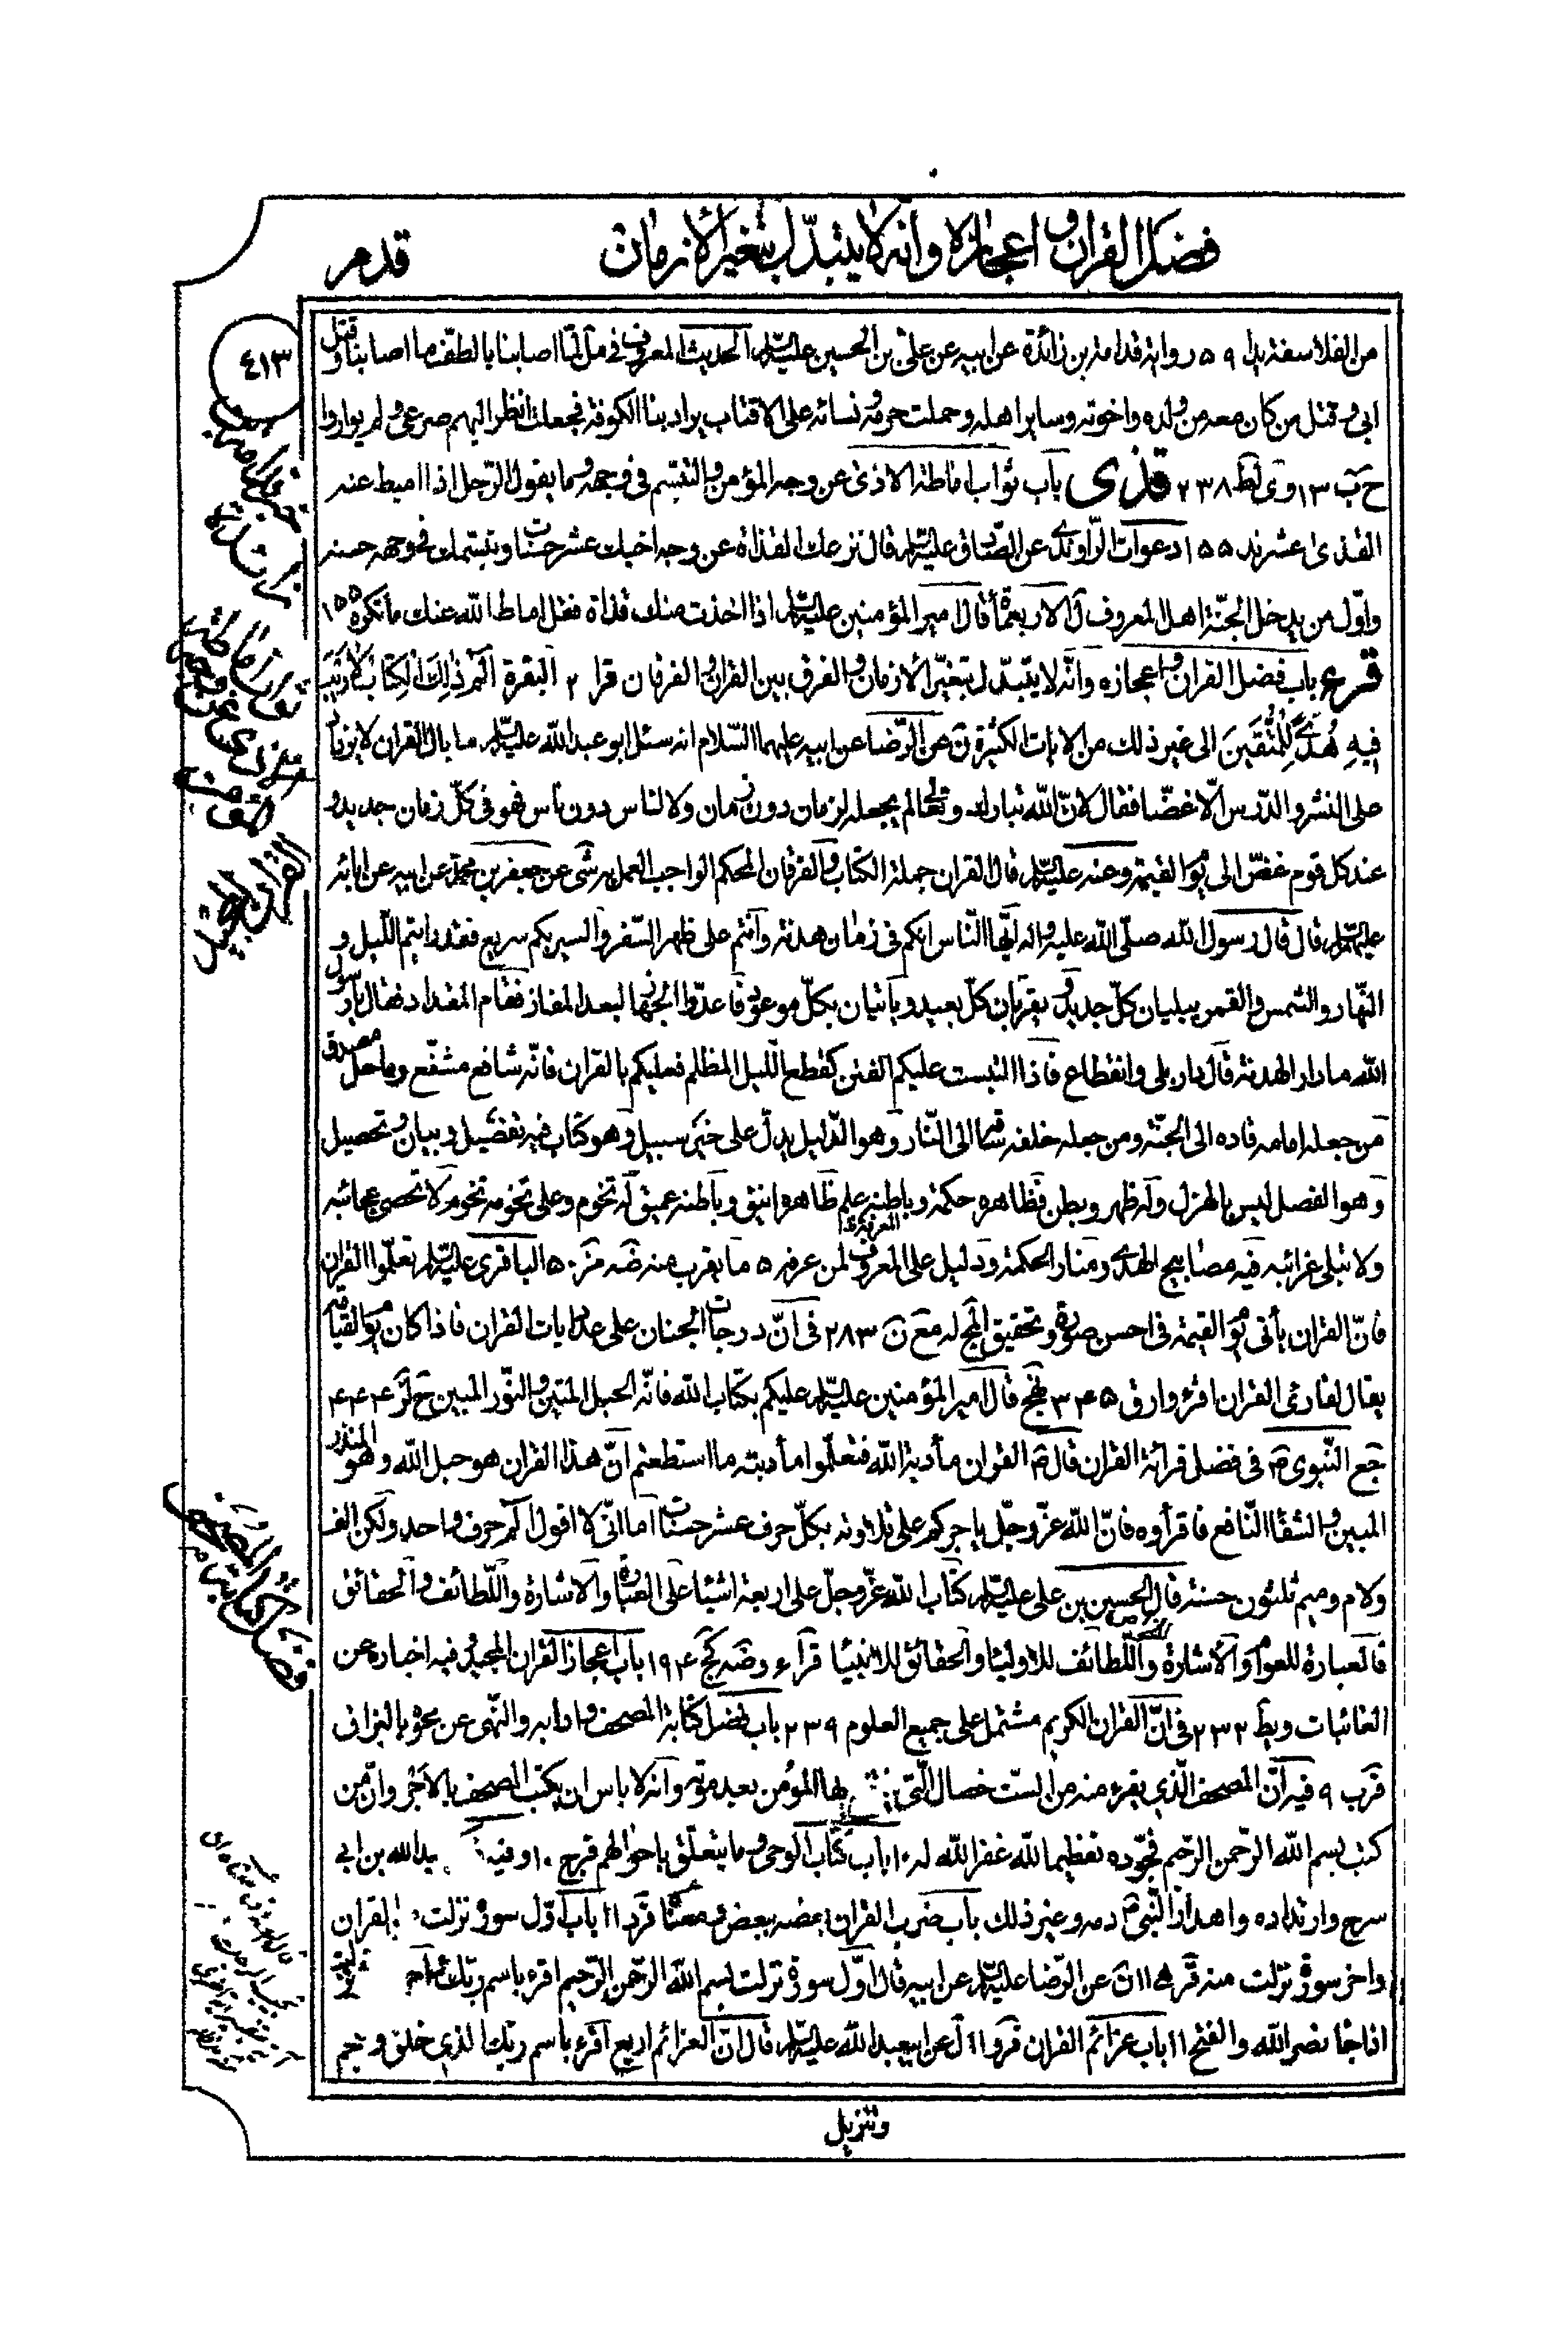 فضل القران و اعجازه وانه لا يتبدّل بتغير الازمان
قدم
٤١٣
من الفلاسفة يدا ٥٩ رواية قدامة بن زائدة عن ابيه عن علىّ بن الحسين عليه السّلم الحديث المعروف فى مثل لمّا اصابنا بالطّف ما اصابنا وقتل
ابى و قتل من كان معه من ولده واخوته وساير اهله وحملت حرمه و نسائه على الاقتاب يراد بنا الكوفة فجعلت انظر اليهم صرعى و لم يواروا
ح ب ١٣ وى لط ٢٣٨ قذى باب ثواب اماطة الاذى عن وجه المؤمن و التبسّم فى وجهه وما يقول الرّجل اذا اميط عنه
القذى عشر ند ١٥٥ دعوات الرّاوندى عن الصّادق عليه السّلم قال نزعك القذاة عن وجه اخيك عشر حسنات وتبسّمك فى وجهه حسنة
واوّل من يدخل الجنّة اهل المعروف ل الاربعمأة قال امير المؤمنين عليه السّلم اذا اخذت منك قذاة فقل اماط الله عنك ما تكره ١٥٥
قرء باب فضل القران و اعجازه وانّه لا يتبدّل بتغيّر الازمان و الفرق بين القران و الفرقان قرا ٢ البقرة الٓمٓ ذٰلِكَ الْكِتَابُ لَا رَيْبَ
فِيهِ هُدىً لِلْمُتَّقِينَ الى غير ذلك من الايات الكثيرة ن عن الرّضا عن ابيه عليهما السّلام انه سئل ابو عبد الله عليه السّلم ما بال القران لا يزداد
على النشر و الدّرس الّا غضّا فقال لانّ الله تبارك وتعالى لم يجعله لزمان دون زمان ولا لناس دون ناس فهو فى كلّ زمان جديد و
عند كل قوم غضّ الى يوم القيمة وعنه عليه السّلم قال القران جملة الكتاب و الفرقان المحكم الواجب العمل به شى عن جعفر بن محمّد عن ابيه عن ابائه
عليهم السّلم قال قال رسول الله صلّى الله عليه و اله ايّها النّاس انكم فى زمان هدنة وانتم على ظهر السّفر و السير بكم سريع فقد رايتم اللّيل و
النّهار و الشمس و القمر يبليان كلّ جديد و يقربان كلّ بعيد و ياتيان بكلّ موعود فاعدّوا الجهاز لبعد المفاز فقام المقداد فقال يا رسول
الله ما دار الهدنة قال دار بلى وانقطاع فاذا التبست عليكم الفتن كقطع اللّيل المظلم فعليكم بالقران فانّه شافع مشفّع وماحل مصدق
من جعله امامه قاده الى الجنّة ومن جعله خلفه ساقه الى النّار وهو الدّليل يدلّ على خير سبيل وهو كتاب فيه تفصيل وبيان و تحصيل
وهو الفصل ليس بالهزل وله ظهر وبطن فظاهره حكمة وباطنه علم ظاهره انيق وباطنه عميق له تخوم وعلى تخومه تخوم لا تحصى عجائبه
ولا تبلى غرائبه فيه مصابيح الهدى ومنار الحكمة ودليل على المعروف لمن عرفه ٥ ما يقرب منه ضه مز ٥٠ الباقرى عليه السّلم تعلّموا القران
فانّ القران يأتى يوم القيمة فى احسن صورة و تحقيق المجل له مع ن ٢٨٣ فى انّ درجات الجنان على عدد ايات القران فاذا كان يوم القيامة
يقال لقارئ القران اقرء وارق ٣٣٤٥ نهج قال امير المؤمنين عليه السّلم عليكم بكتاب الله فانّه الحبل المتين و النّور المبين ح لز ٤٤٤
جع النّبوى ص فى فضل قرائة القران قال ص القران مأدبة الله فتعلّموا مأدبته ما استطعتم انّ هذا القران هو حبل الله وهو النور
المبين و الشفاء النّافع فاقرأوه فانّ الله عزّ وجلّ ياجركم على تلاوته بكلّ حرف عشر حسنات اما انّى لا اقول الم حرف واحد ولكن الف
ولام وميم ثلثون حسنة قال الحسين بن على عليه السّلم كتاب الله عزّ وجلّ على اربعة اشياء على العبارة و الاشارة واللّطائف و الحقائق
فالعبارة للعوام و الاشارة للخواص واللّطائف للاولياء والحقائق للانبياء قرآء وضه كج ١٩٤ باب اعجاز القران المجيد و فيه اخباره عن
الغائبات ويط ٢٣٢ فى انّ القران الكريم مشتمل على جميع العلوم ٢٣٩ باب فضل كتابة المصحف و ادابه و النّهى عن محوه بالبزاق
قرب ٩ فيه انّ المصحف الّذى يقرء منه من الستّ خصال الّتى بها المؤمن بعد موته وانّه لا باس ان يكتب المصحف بالاجر وانّ من
كتب بسم الله الرّحمن الرّحيم فجّوده تعظيما لله غفر الله له ١٠ باب كتّاب الوحى و ما يتعلّق باحوالهم قرج ١٠ وفيه يد الله بن ابى
سرح وارتداده واهدار النّبى ص دمه وغير ذلك باب ضرب القران بعضه ببعض و معناه قرد ١١ باب اوّل سورة نزلت القران
واخر سورة نزلت منه قره ١١ ن عن الرّضا عليه السّلم عن ابيه قال اوّل سورة نزلت بسم الله الرّحمن الرّحيم اقرء باسم ربّك
اذا جاء نصر الله و الفتح ١١ باب عزائم القران قرو ١١ ل عن ابيعبد الله عليه السّلم قال انّ العزائم اربع اقرء باسم ربّك الّذى خلق و نجم
وتنزيل